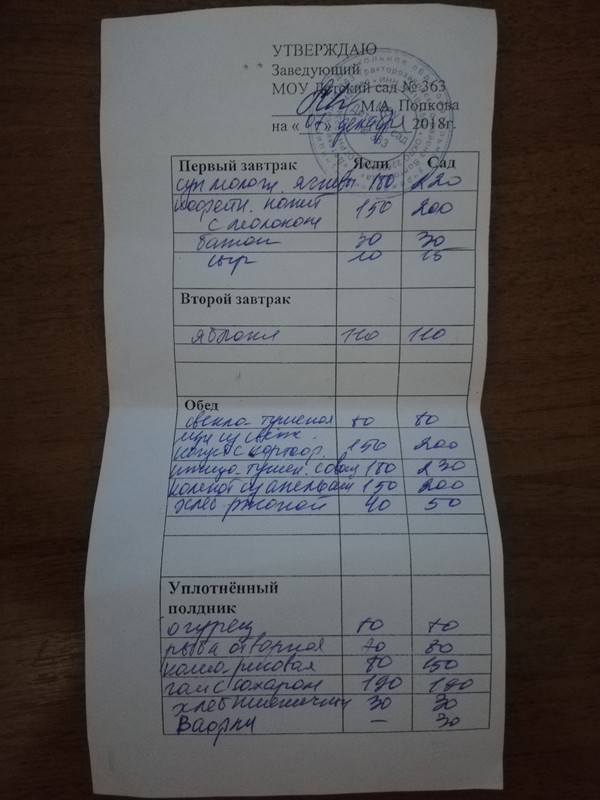 УТВЕРЖДАЮ
Заведующий
МОУ Детский сад № 363
М.А. Попкова
на « 07 » декабря 2018г.
Первый завтрак Ясли Сад
суп молочн. ячневы 180 220
кофейн. напит 150 200
с молоком
батон 30 30
сыр 10 15
Второй завтрак
яблоки 110 110
Обед
свекла тушеная 80 80
щи из свеж.
капус с картоф. 150 200
птица тушен. с овощ 180 230
компот из апельсин 150 200
хлеб ржаной 40 50
Уплотнённый
полдник
огурец
рыба отварная 80
каша рисовая 80
чай с сахаром 190 190
хлеб пшеничный 30 30
Вафли — 30